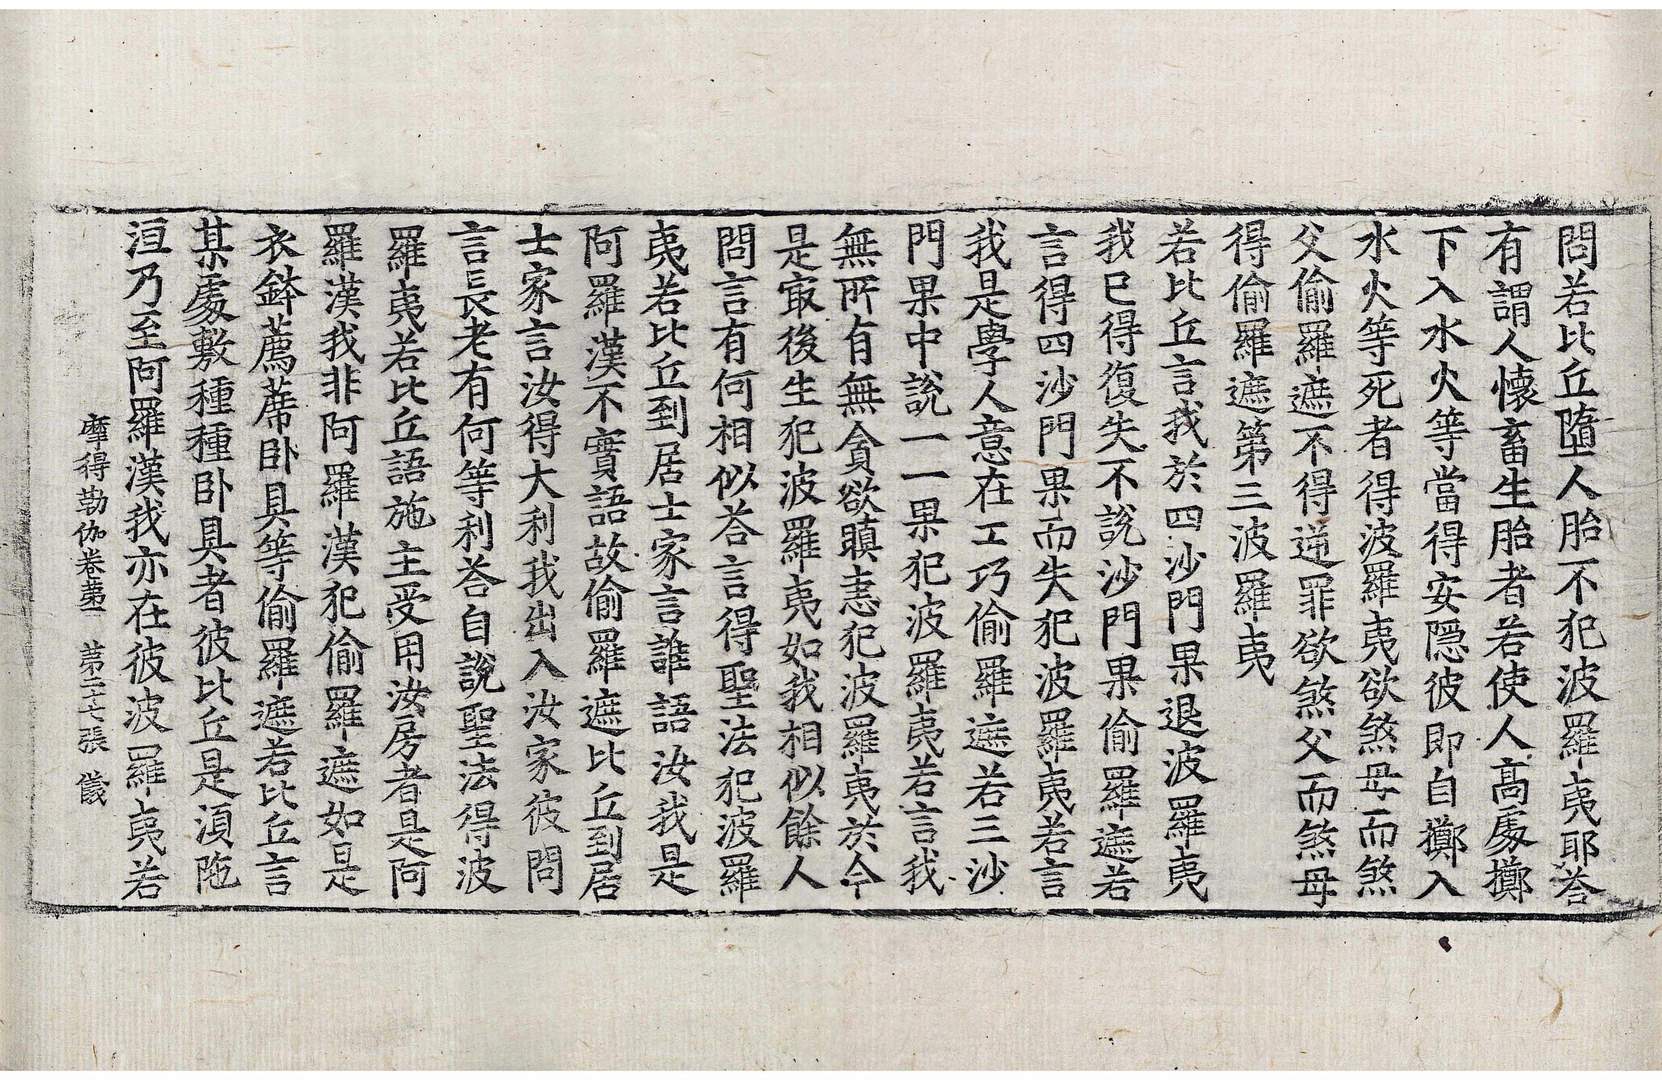 問若比丘墮人胎不犯波羅夷耶荅
有謂人懷畜生胎者若使人高處擲
下入水火等當得安隱彼即自擲入
水火等死者得波羅夷欲煞母而煞
父偷羅遮不得逆罪欲煞父而煞母
得偷羅遮第三波羅夷
若比丘言我於四沙門果退波羅夷
我已得復失不說沙門果偷羅遮若
言得四沙門果而失犯波羅夷若言
我是學人意在工巧偷羅遮若三沙
門果中說一一果犯波羅夷若言我
無所有無貪欲瞋恚犯波羅夷於今
是㝡後生犯波羅夷如我相似餘人
問言有何相似荅言得聖法犯波羅
夷若比丘到居士家言誰語汝我是
阿羅漢不實語故偷羅遮比丘到居
士家言汝得大利我出入汝家彼問
言長老有何等利荅自說聖法得波
羅夷若比丘語施主受用汝房者是阿
羅漢我非阿羅漢犯偷羅遮如是
衣鉢薦蓆卧具等偷羅遮若比丘言
某處敷種種卧具者彼比丘是湏陁
洹乃至阿羅漢我亦在彼波羅夷若
摩得勒伽卷苐一 苐二十七張 儀